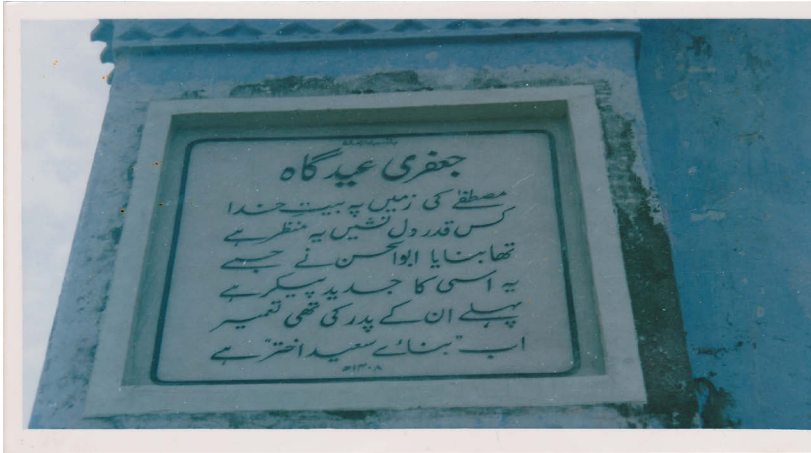 جعفری عید گاہ
مصطفےٰ کی زمیں پہ بیتِ خدا
کس قدر دل نشیں یہ منظر ہے
تھا بنایا ابوالحسن نے جسے
یہ اسی کا جدید پیکر ہے
پہلے ان کے پدر کی تھی تعمیر
اب "بنائے سعید اختر" ہے
۱۴۰۸ھ